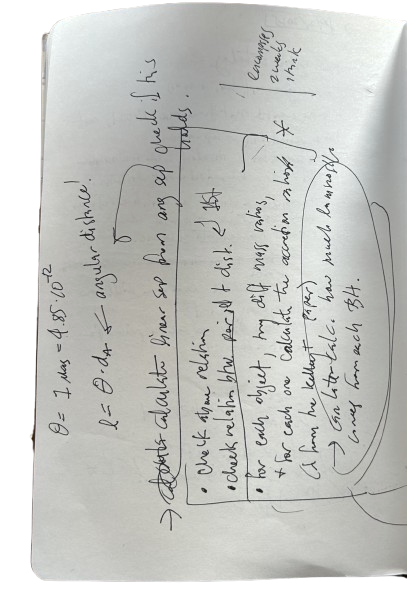 θ = 1 mas = 4.85·10⁻¹²
l = θ·d_A ← angular distance!
→ calculate linear sep from ang sep check if this
holds.
• check above relation
• check relation btw period + dist. 1st
• for each object, try diff mass ratios,
+ for each one calculate the accretion ratios *
(λ from the paper)
→ can later calc. how much luminosity
comes from each BH.
encompasses
2 weeks
I think